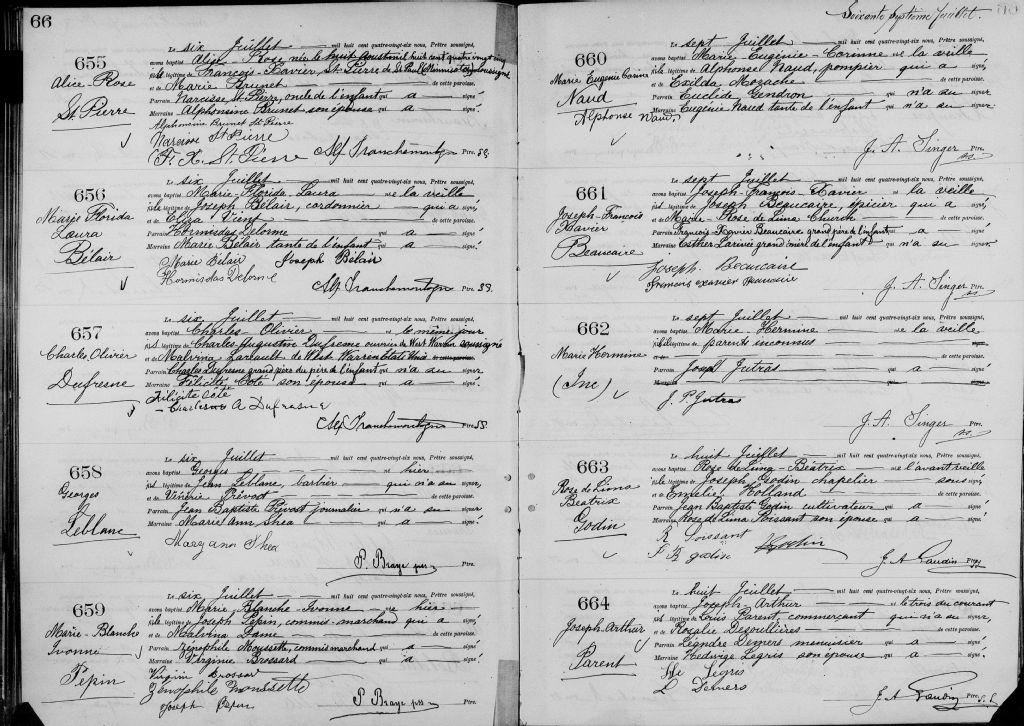 66
655
Alice Rose
St Pierre
Le six Juillet mil huit cent quatre-vingt-six nous, Prêtre soussigné,
avons baptisé Alice Rose née le huit Aout mil huit cent quatre vingt cinq
fille légitime de François-Xavier St-Pierre de St Paul Minnisota soussigné
et de Marie Brunet
Parrain Narcisse St Pierre, oncle de l'enfant qui a signé
Marraine Alphonsine Brunet son épouse qui a signé.
Alphonsine Brunet St-Pierre
Narcisse St Pierre
F. X. St. Pierre Alf Tranchemontagne Ptre. SS.
656
Marie Florida
Laura
Bélair
Le six Juillet mil huit cent quatre-vingt-six nous, Prêtre soussigné,
avons baptisé Marie-Florida-Laura née la veille
fille légitime de Joseph Bélair, cordonnier qui a signé,
et de Eliza Viens de cette paroisse.
Parrain Hormisdas Delorme qui a signé
Marraine Marie Bélair tante de l'enfant qui a signé.
Marie Bélair Joseph Bélair
Hormisdas Delorme
Alf Tranchemontagne Ptre. SS.
657
Charles Olivier
Dufresne
Le six Juillet mil huit cent quatre-vingt-six nous, Prêtre soussigné,
avons baptisé Charles Olivier, né le même jour
fils légitime de Charles Augustin Dufresne ouvrier de West Warren soussigné
et de Malvina Larbault de West Warren Etats Unis
Parrain Charles Dufresne grand père du père de l'enfant qui n'a su signer
Marraine Félicité Coté son épouse qui a signé.
Félicité Coté
Charles A Dufresne
Alf Tranchemontagne Ptre SS.
658
Georges
Leblanc
Le six Juillet mil huit cent quatre-vingt-six nous, Prêtre soussigné,
avons baptisé Georges né hier
fils légitime de Jean Leblanc, barbier qui n'a su signer,
et de Vinerie Prévost de cette paroisse.
Parrain Jean Baptiste Prévost journalier qui n'a su signer
Marraine Marie Ann Shea qui a signé.
Mary ann Shea
P. Braye Ptre.
659
Marie-Blanche
Ivonne
Pepin
Le six Juillet mil huit cent quatre-vingt-six nous, Prêtre soussigné,
avons baptisé Marie Blanche-Ivonne née hier
fille légitime de Joseph Pepin, commis-marchand qui a signé,
et de Malvina Dame de cette paroisse.
Parrain Zénophile Moussette, commis marchand qui a signé
Marraine Virginie Brossard qui a signé.
Virginie Brossar
Zenophile Moussette
Joseph Pepin P Braye Ptre.
Soixante septième Juillet.
660
Marie Eugénie Corine
Naud
Le sept Juillet mil huit cent quatre-vingt-six nous, Prêtre soussigné,
avons baptisé Marie-Eugénie-Corinne née la veille
fille légitime de Alphonse Naud, pompier qui a signé,
et de Exilda Mozarche de cette paroisse.
Parrain Euclide Gendron qui n'a su signer
Marraine Eugénie Naud tante de l'enfant qui n'a su signer.
Alphonse Naud
J. A. Singer Ptre.
661
Joseph-François
Xavier
Beaucaire
Le sept Juillet mil huit cent quatre-vingt-six nous, Prêtre soussigné,
avons baptisé Joseph-François-Xavier né la veille
fils légitime de Joseph Beaucaire, épicier qui a signé,
et de Marie-Rose de Lima Church de cette paroisse.
Parrain François Xavier Beaucaire grand père de l'enfant qui a signé
Marraine Esther Larivée grand'mère de l'enfant qui n'a su signer.
Joseph Beaucaire
Francois exavier Beaucaire
J. A. Singer Ptre.
662
Marie Hermine
(Inc)
Le sept Juillet mil huit cent quatre-vingt-six nous, Prêtre soussigné,
avons baptisé Marie-Hermine née la veille
fille légitime de parents inconnus
Parrain Joseph Jutras qui a signé
J. P. Jutras
J. A. Singer Ptre.
663
Rose de Lima
Béatrix
Godin
Le huit Juillet mil huit cent quatre-vingt-six nous, Prêtre soussigné,
avons baptisé Rose de Lima-Béatrix née l'avant veille
fille légitime de Joseph Godin chapelier sous signé,
et de Emélie Holland de cette paroisse.
Parrain Jean Baptiste Godin cultivateur qui a signé
Marraine Rose de Lima Poissant son épouse qui a signé.
R Poissant
J B godin J Godin
J. A Gaudin Ptre
664
Joseph-Arthur
Parent
Le huit Juillet mil huit cent quatre-vingt-six nous, Prêtre soussigné,
avons baptisé Joseph-Arthur né le trois du courant
fils légitime de Louis Parent, commerçant qui n'a su signer,
et de Rosalie Desoullières de cette paroisse.
Parrain Léandre Demers menuisier qui a signé
Marraine Hedwige Legris son épouse qui a signé.
Legris
L Demers
J. A Gaudin Ptre. s.s.